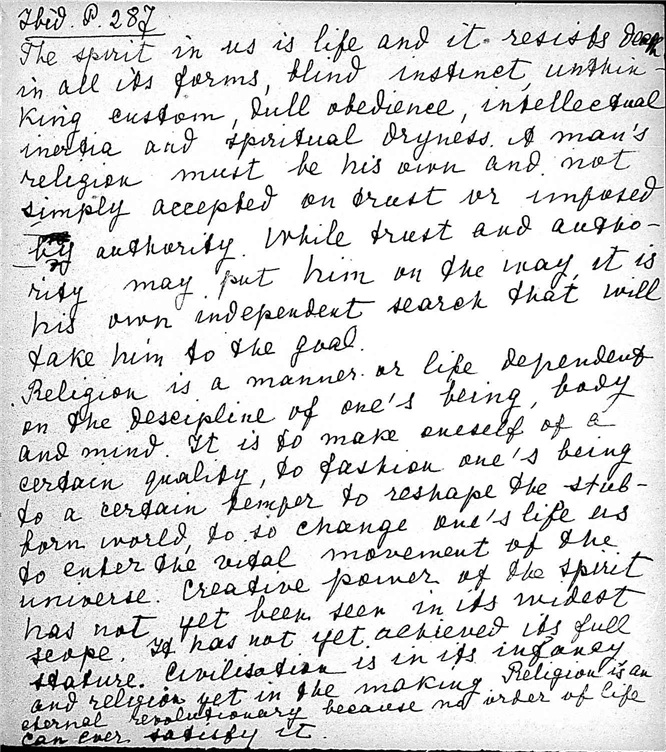 Ibid. P. 287
The spirit in us is life and it resists death
in all its forms, blind instinct, unthin-
king custom, dull obedience, intellectual
inertia and spiritual dryness. A man's
religion must be his own and not
simply accepted on trust or imposed
by authority. While trust and autho-
rity may put him on the way, it is
his own independent search that will
take him to the goal.
Religion is a manner or life dependent
on the descipline of one's being, body
and mind. It is to make oneself of a
certain quality, to fashion one's being
to a certain temper to reshape the stub-
born world, to so change one's life us
to enter the vital movement of the
universe. Creative power of the spirit
has not yet been seen in its widest
scope. It has not yet achieved its full
stature. Civilisation is in its infancy
and religion yet in the making Religion is an
eternal revolutionary because no order of life
can ever satisfy it.